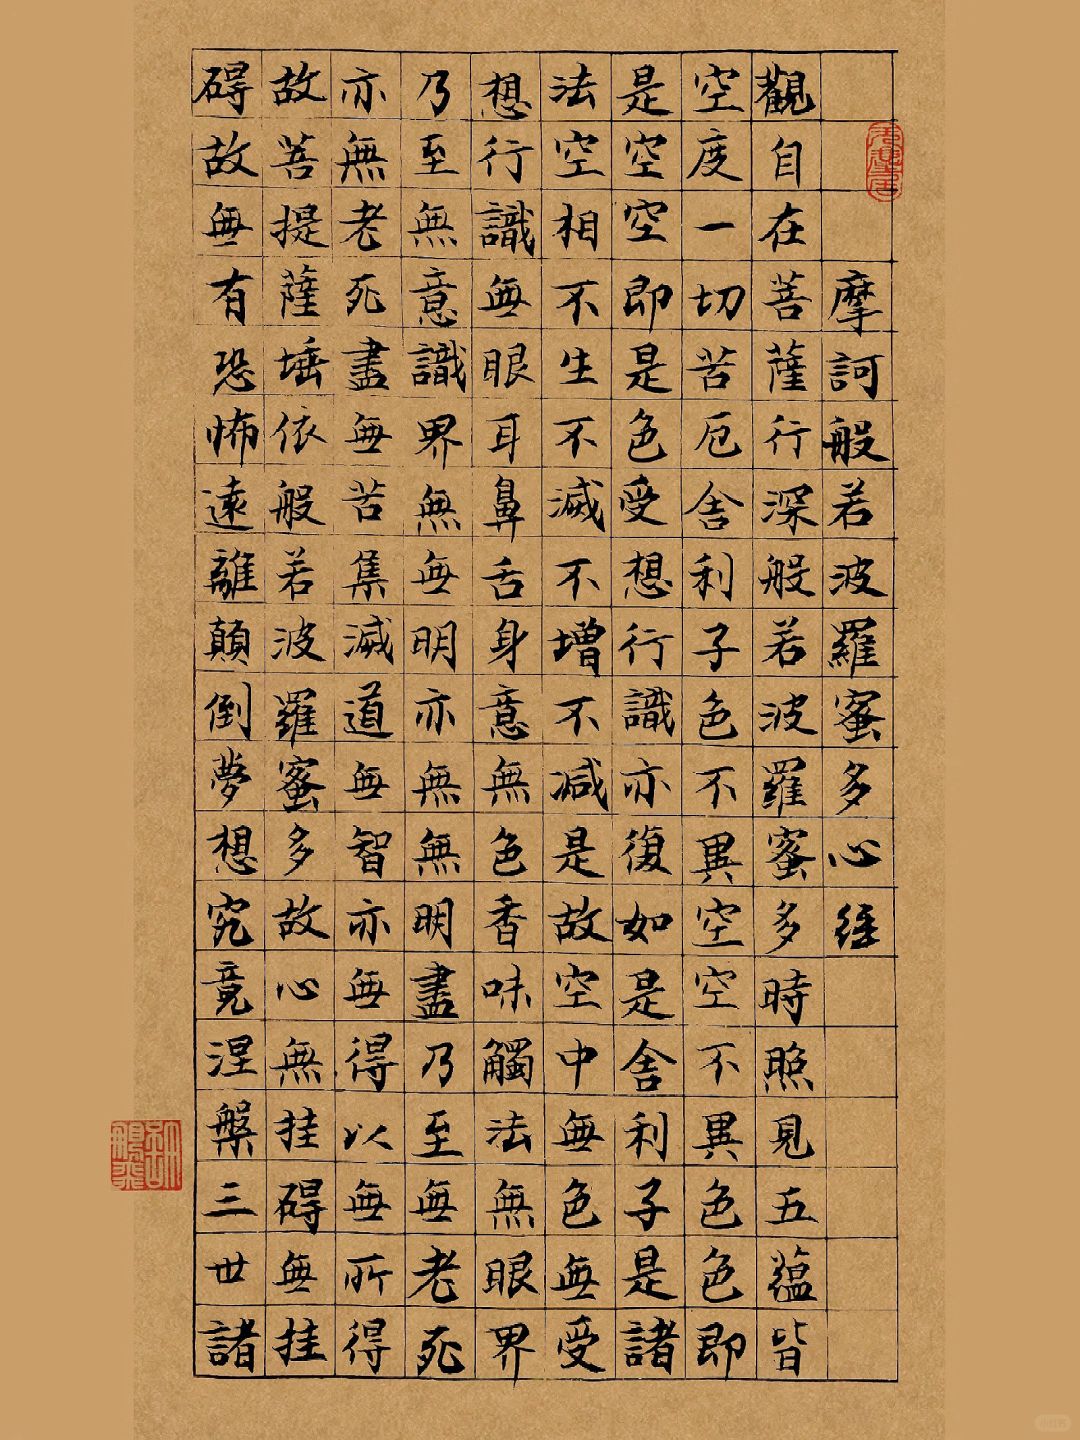 摩訶般若波羅蜜多心經
觀自在菩薩行深般若波羅蜜多時照見五蘊皆
空度一切苦厄舍利子色不異空空不異色色即
是空空即是色受想行識亦復如是舍利子是諸
法空相不生不滅不增不減是故空中無色無受
想行識無眼耳鼻舌身意無色香味觸法無眼界
乃至無意識界無無明亦無無明盡乃至無老死
亦無老死盡無苦集滅道無智亦無得以無所得
故菩提薩埵依般若波羅蜜多故心無挂碍無挂
碍故無有恐怖遠離顛倒夢想究竟涅槃三世諸